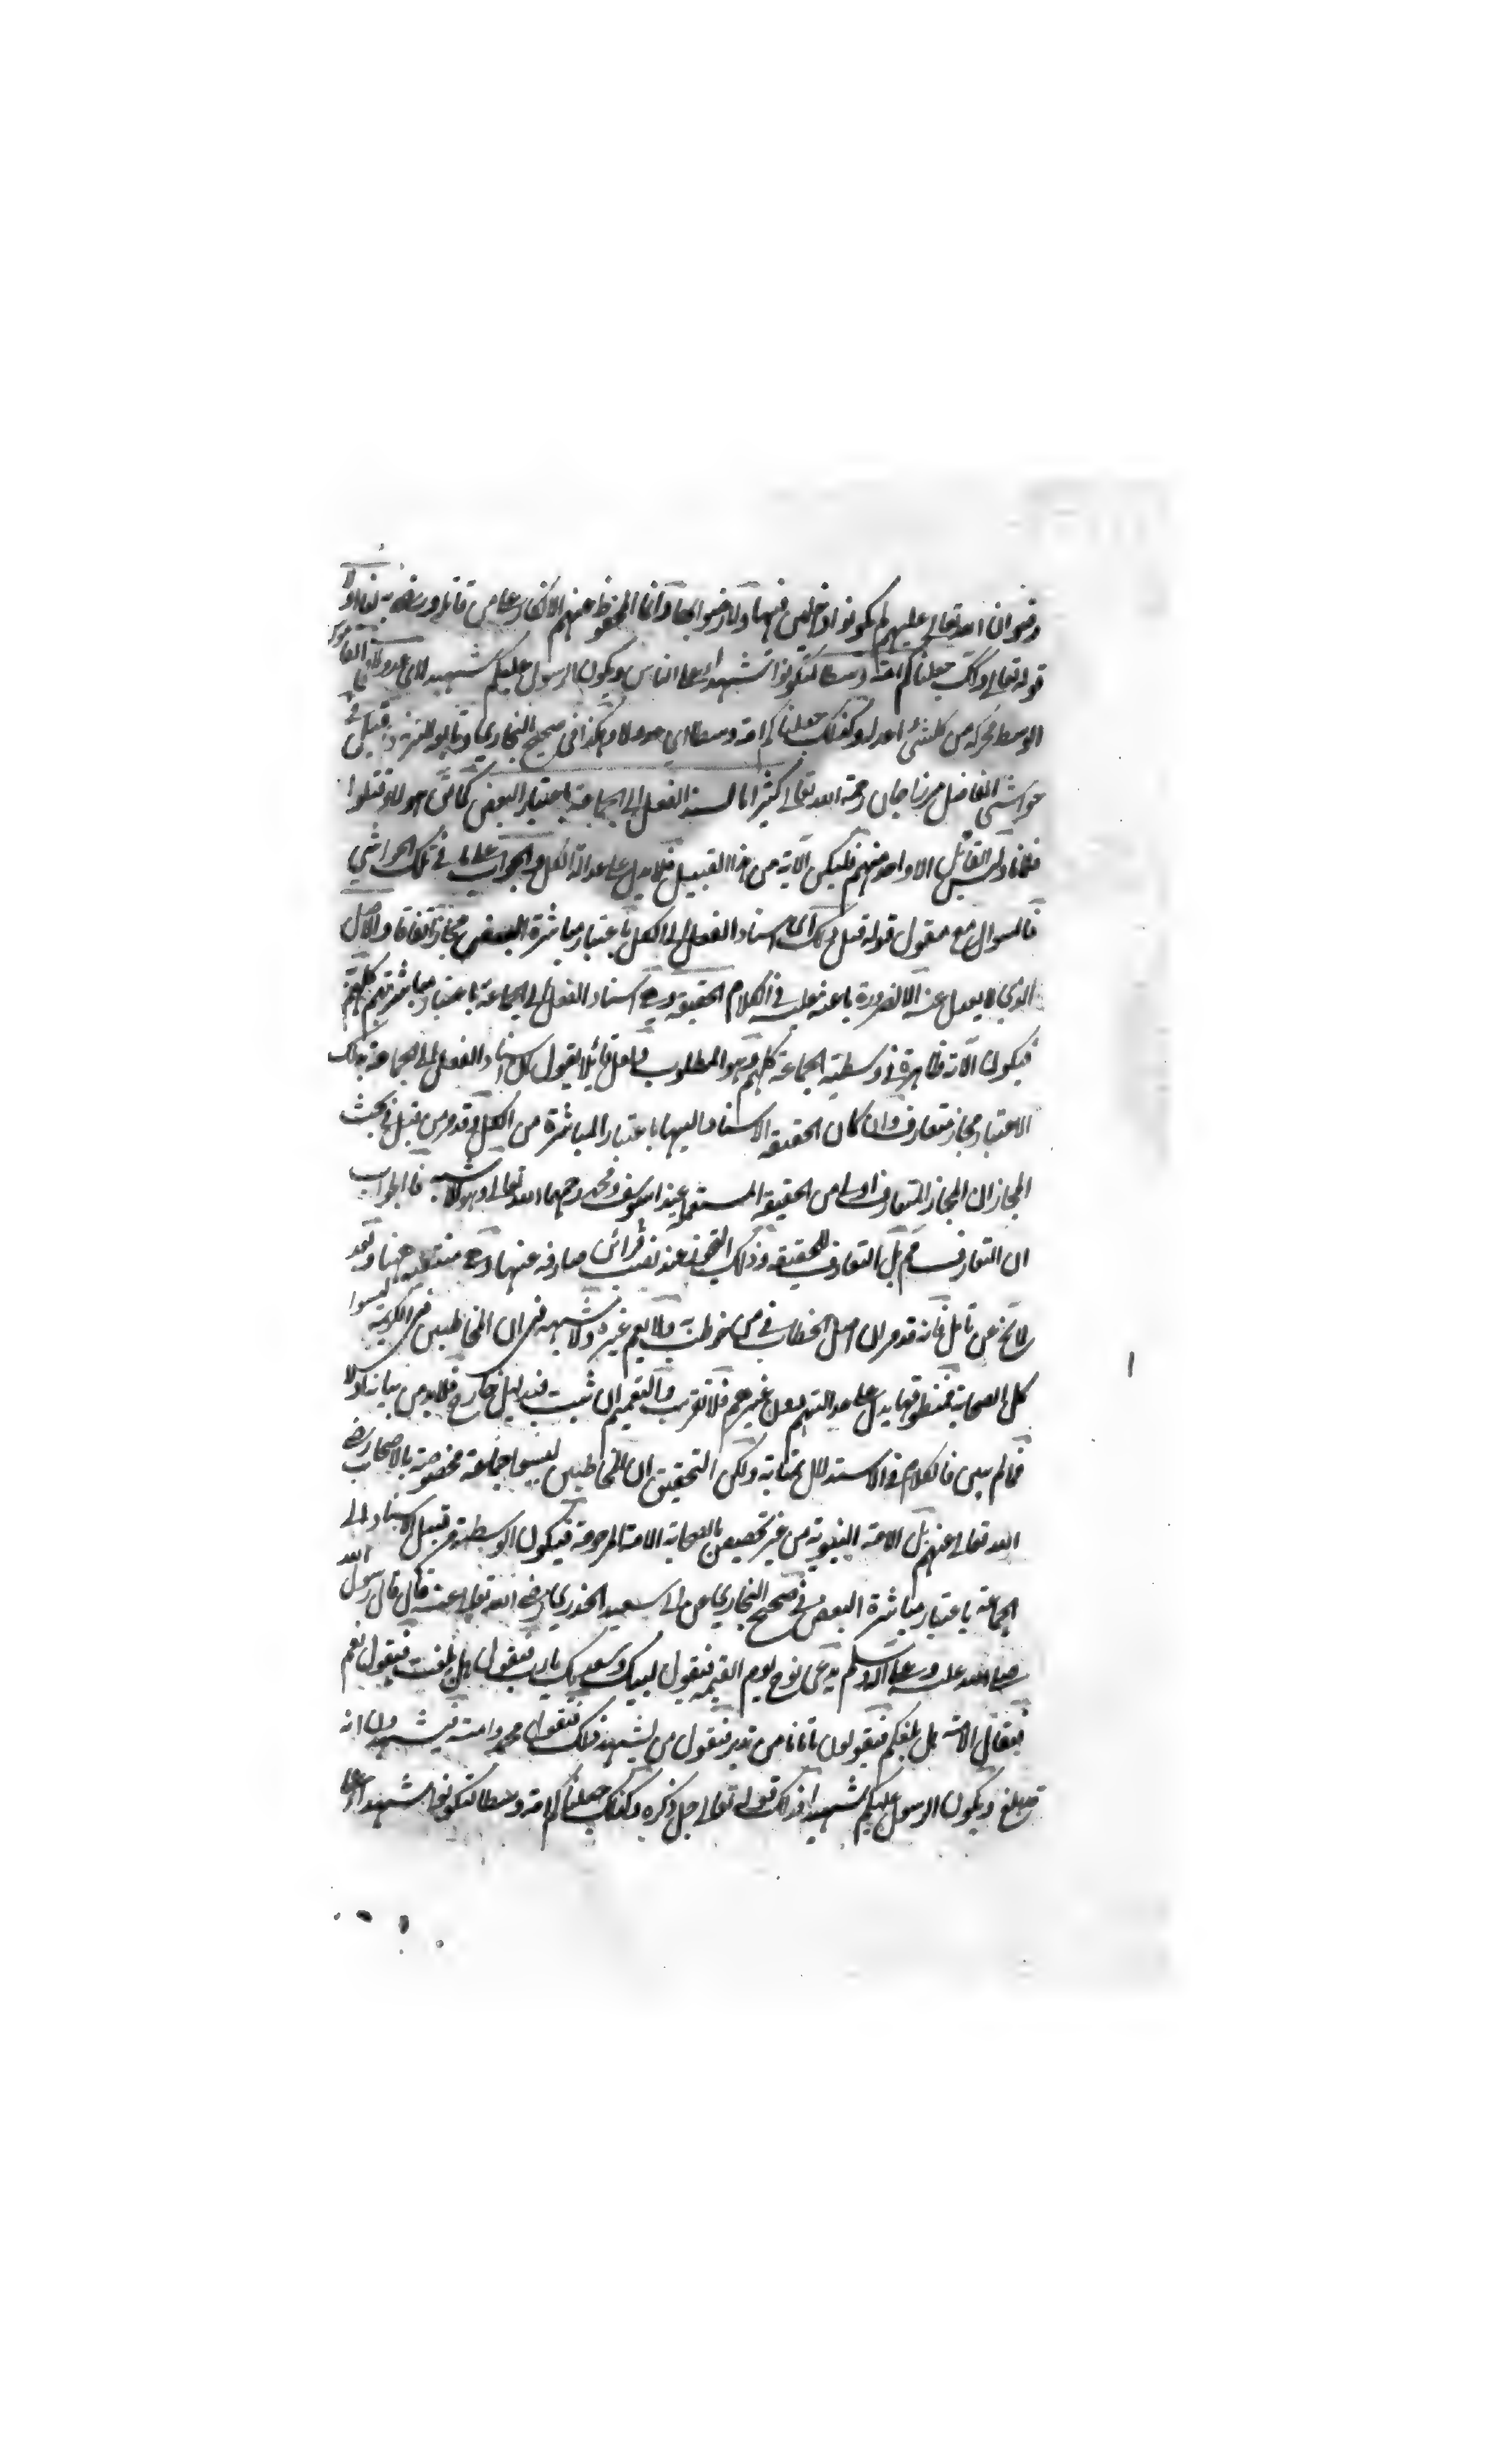 ورضوان الله تعالى عليهم لم يكونوا داخلين فيها ولا رضوا بها وانما المحفوظ عنهم الانكار على من قاتل ورضي به لنا اولا
قوله تعالى وكذلك جعلناكم امة وسطا لتكونوا شهداء على الناس ويكون الرسول عليكم شهيدا اي عدولا في القاموس
الوسط محركة من كل شئ اعدله وكذلك جعلناكم امة وسطا اي عدولا وهكذا في صحيح البخاري قيل في
حواشي الفاضل ميرزا جان رحمة الله تعالى كثيرا ما يسند الفعل الى الجماعة باعتبار البعض كما في هؤلاء قتلوا
فلانا وليس القاتل الا واحد منهم فليكن الآية من هذا القبيل فلا يدل على عدالة الكل والجواب على ما في تلك الحواشي
فالسوال مع مقول قوله قيل لك اي اسناد الفعل الى الكل باعتبار مباشرة البعض مجاز اتفاقا والاصل
الذي لا يعدل عنه الا لضرورة باعثة عليه في الكلام الحقيقة وهي اسناد الفعل الى الجماعة باعتبار مباشرتهم كلهم
فيكون الآية ظاهرة في وسطية الجماعة كلهم وهو المطلوب ولعل قائلا يقول ان اسناد الفعل الى الجماعة بذلك
الاعتبار مجاز متعارف وان كان الحقيقة الاسناد اليها باعتبار المباشرة من الكل وقد مر من قبل في بحث
المجاز ان المجاز المتعارف اولى من الحقيقة المستعملة عند ابي يوسف ومحمد رحمهما الله تعالى وهو الاشبه فالجواب
ان التعارف بل التعارف للحقيقة وذلك التجوز عند نصب قرائن صارفة عنها وهي منتفية ههنا وبعد
لا يخ عن تامل فانه قد مر ان اصل الخطاب في من خوطب به ولا يعم غيره ولا شبهة في ان المخاطبين في الكريمة ليسوا
كل الصحابة فمنطوقها يدل على عدالتهم دون غيرهم فلا تقريب والتعميم ان ثبت فبدليل خارج فلا بد من بيانه اولا
فما لم يبين فالكلام في الاستدلال بحاله ولكن التحقيق ان المخاطبين ليسوا جماعة مخصوصة بالاصحاب رضي
الله تعالى عنهم بل الامة النبوية من غير تخصيص بالصحابة الامة المرحومة فيكون الوسطية من قبيل الاسناد الى
الجماعة باعتبار مباشرة البعض في صحيح البخاري عن ابي سعيد الخدري رضي الله تعالى عنه قال قال رسول الله
صلى الله عليه وعلى آله وسلم يدعى نوح يوم القيمة فيقول لبيك وسعديك يا رب فيقول هل بلغت فيقول نعم
فيقال لامته هل بلغكم فيقولون ما اتانا من نذير فيقول من يشهد لك فيقول محمد وامته فيشهدون انه
قد بلغ ويكون الرسول عليكم شهيدا فذلك قوله تعالى جل ذكره وكذلك جعلناكم امة وسطا لتكونوا شهداء على